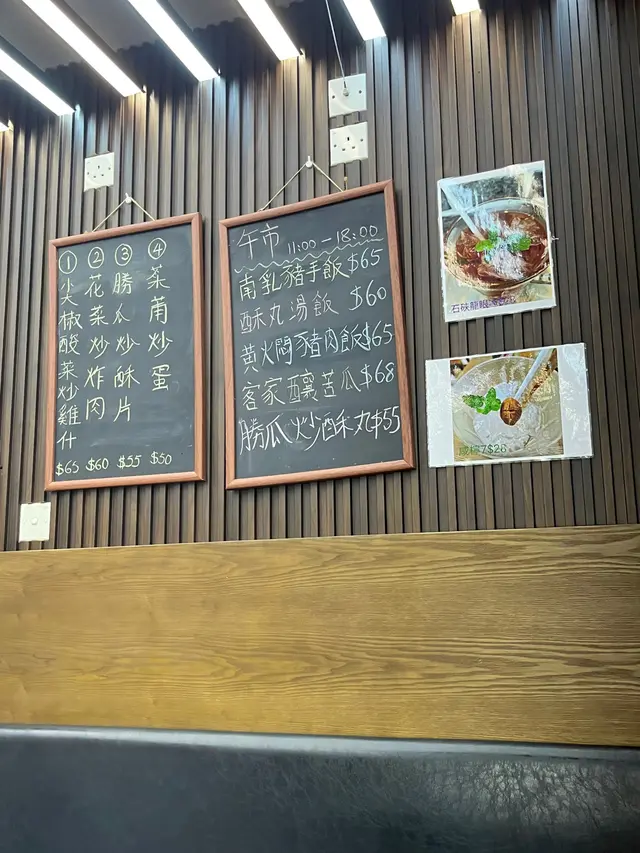 ① 尖椒酸菜炒雞什 $65
② 花菜炒炸肉 $60
③ 勝瓜炒酥片 $55
④ 菜甫炒蛋 $50
午市 11:00-18:00
南乳豬手飯 $65
酥丸湯飯 $60
黄火悶豬肉飯 $65
客家釀苦瓜 $68
勝瓜炒酥丸 $55
石硤龍眼
咸柑7 $28